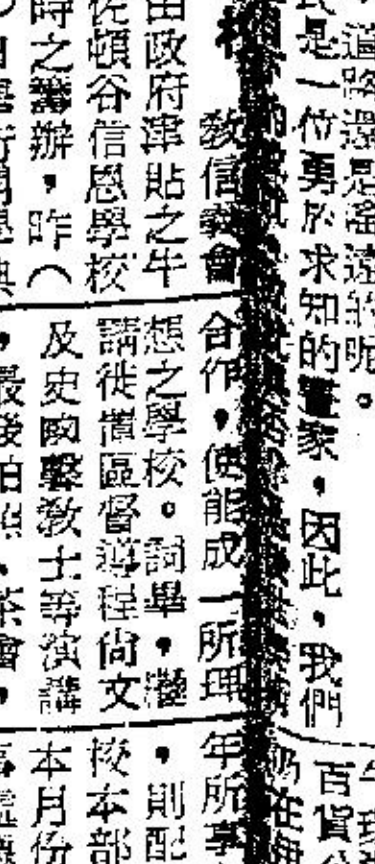 道路還是遙遠的呢。
是一位勇於求知的畫家，因此，我們
敎信義會
由政府津貼之牛
佐頓谷信恩學校
時之籌辦，昨（
合作，使能成一所理
想之學校。詞畢，繼
請徙置區督導程尚文
及史國馨敎士等演講
，最後拍照、茶會，
百貨
仍在
年所享
，則配
校本部
本月份